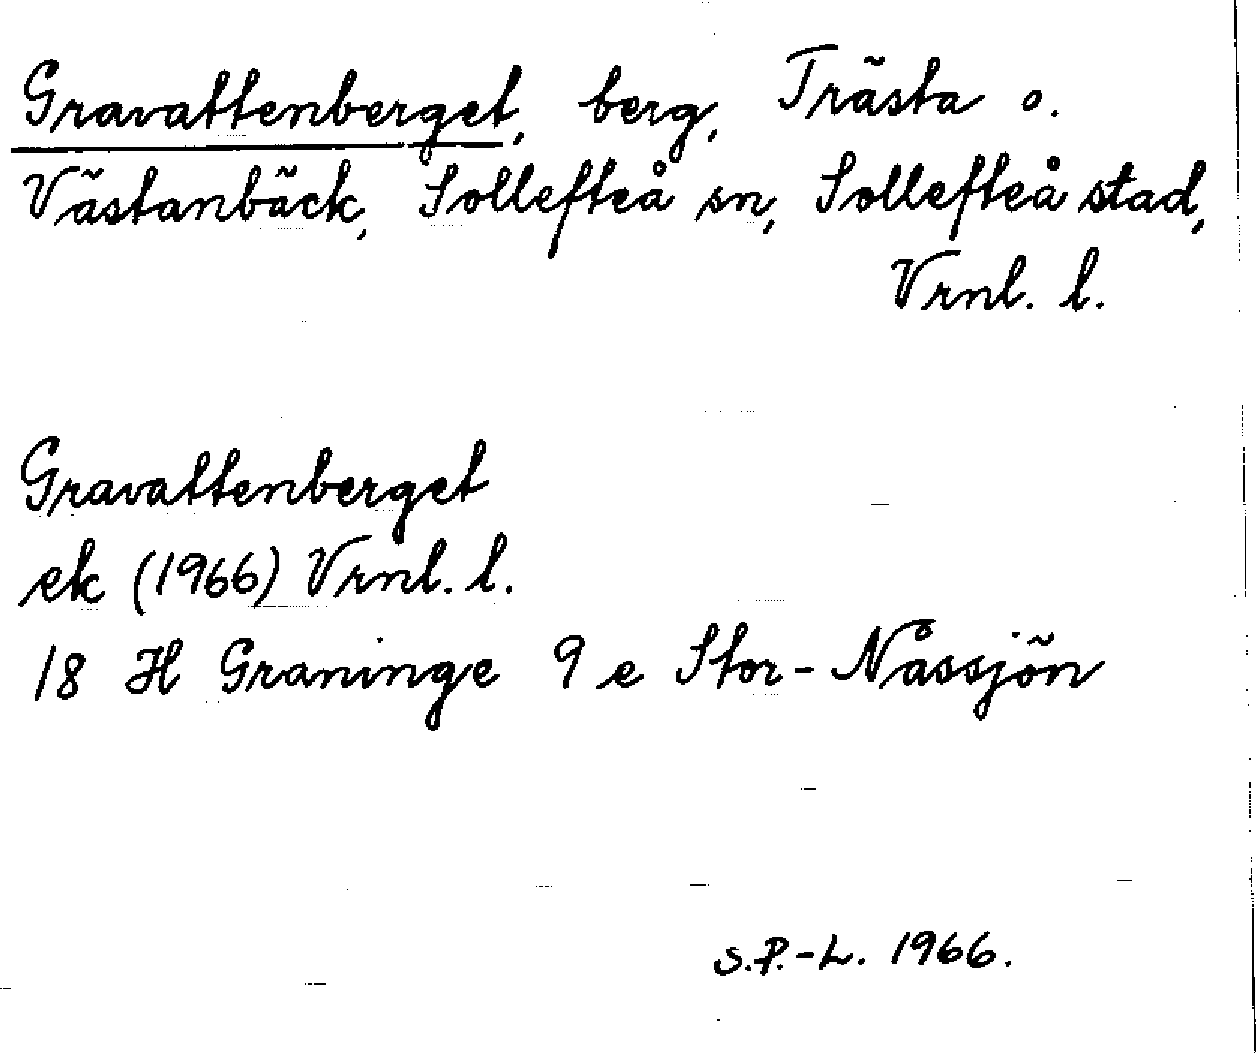 Gravattenberget, berg, Trästa o.
Västanbäck, Sollefteå sn, Sollefteå stad,
Vrnl. l.
Gravattenberget
ek (1966) Vrnl. l.
18 H Graninge 9 e Stor-Nåssjön
S.P.-L. 1966.